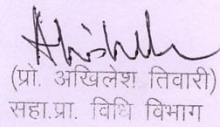 (प्रो. अखिलेश तिवारी)
सहा.प्रा. विधि विभाग